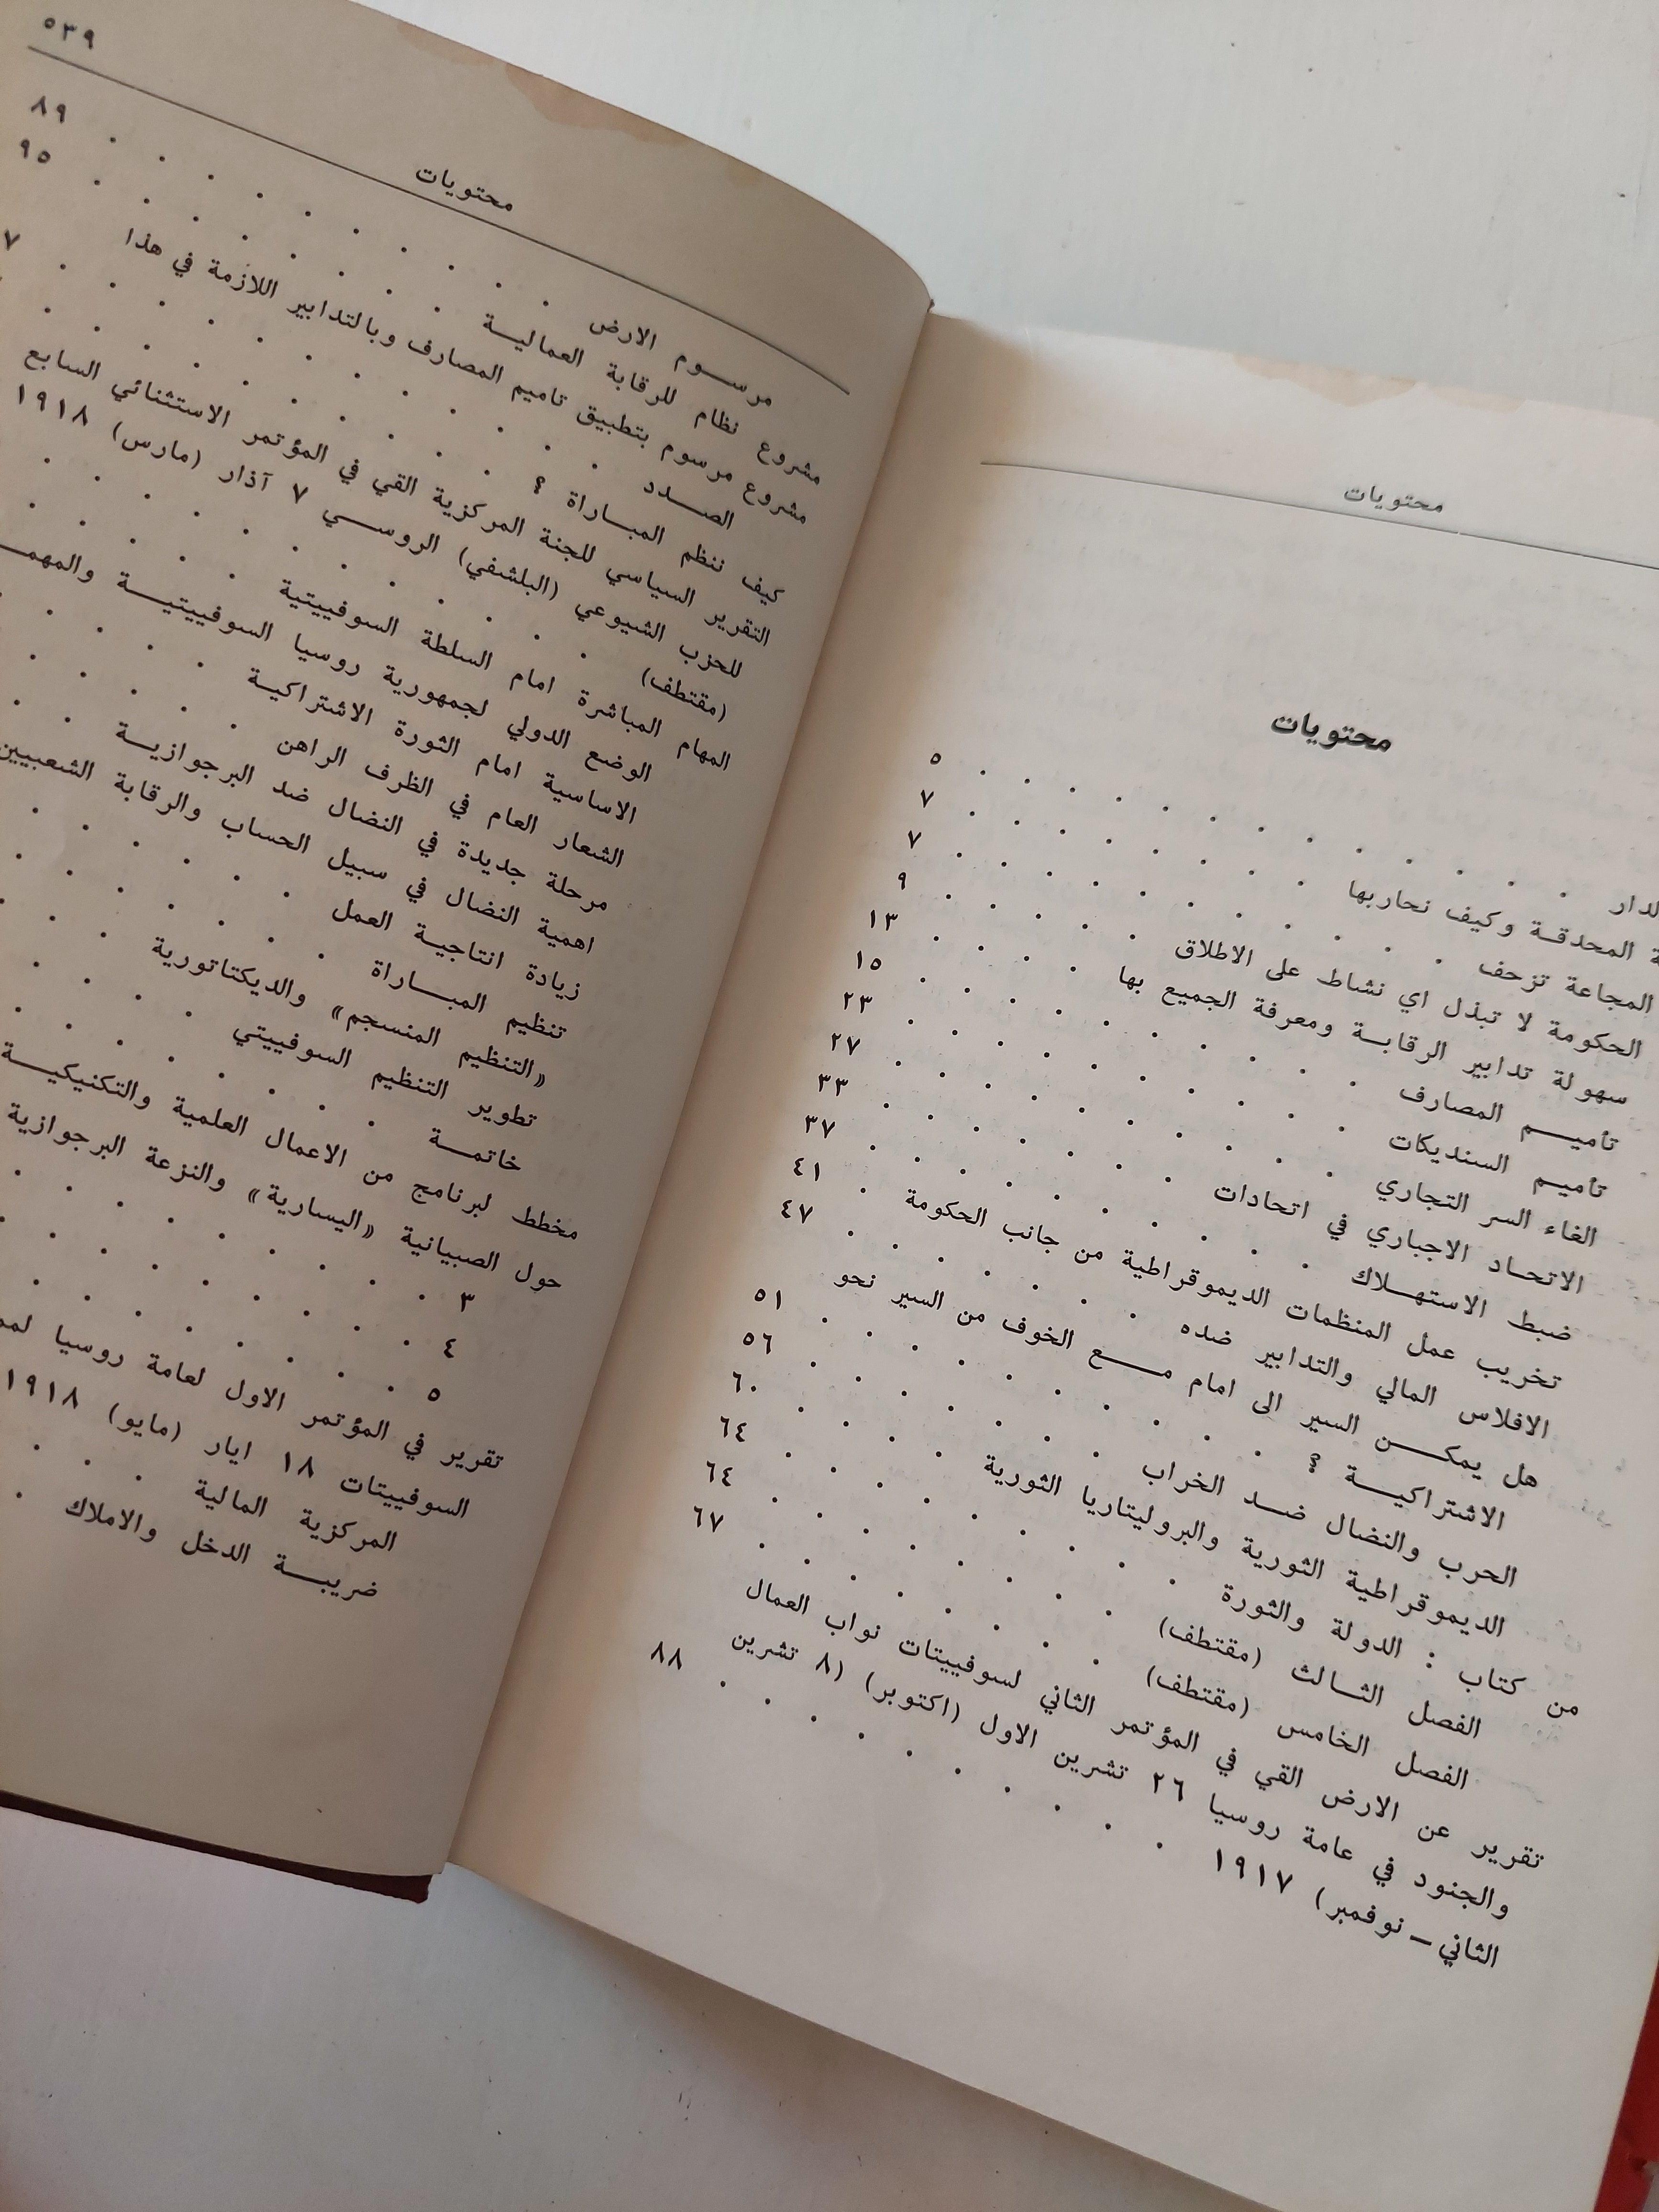 محتويات
محتويات
٥
لدار . . . . . . . . . . . . . .
المحدقة وكيف نحاربها . . . . . . . . ٧
المجاعة تزحف . . . . . . . . . . ٧
الحكومة لا تبذل اي نشاط على الاطلاق . . . . . ٩
سهولة تدابير الرقابة ومعرفة الجميع بها . . . . ١٣
تأميم المصارف . . . . . . . . . . ١٥
تأميم السنديكات . . . . . . . . . . ٢٣
الغاء السر التجاري . . . . . . . . . . ٢٧
الاتحاد الاجباري في اتحادات . . . . . . . ٣٣
ضبط الاستهلاك . . . . . . . . . . ٣٧
تخريب عمل المنظمات الديموقراطية من جانب الحكومة . ٤١
الافلاس المالي والتدابير ضده . . . . . . . ٤٧
هل يمكن السير الى امام مع الخوف من السير نحو
الاشتراكية ؟ . . . . . . . . . . ٥١
الحرب والنضال ضد الخراب . . . . . . . ٥٦
الديموقراطية الثورية والبروليتاريا الثورية . . . . ٦٠
من كتاب : الدولة والثورة . . . . . . . . ٦٤
الفصل الثالث (مقتطف) . . . . . . . . ٦٤
الفصل الخامس (مقتطف) . . . . . . . . ٦٧
تقرير عن الارض القي في المؤتمر الثاني لسوفييتات نواب العمال
والجنود في عامة روسيا ٢٦ تشرين الاول (اكتوبر) (٨ تشرين
الثاني – نوفمبر) ١٩١٧ . . . . . . . . . . ٨٨
محتويات ٥٣٩
مرسوم الارض . . . . . . . . . . ٨٩
مشروع نظام للرقابة العمالية . . . . . . . . ٩٥
مشروع مرسوم بتطبيق تاميم المصارف وبالتدابير اللازمة في هذا
الصدد . . . . . . . . . . . . ٧
كيف ننظم المباراة ؟ . . . . . . . . . .
التقرير السياسي للجنة المركزية القي في المؤتمر الاستثنائي السابع
للحزب الشيوعي (البلشفي) الروسي ٧ آذار (مارس) ١٩١٨
(مقتطف) . . . . . . . . . . . .
المهام المباشرة امام السلطة السوفييتية . . . . . .
الوضع الدولي لجمهورية روسيا السوفييتية
الاساسية امام الثورة الاشتراكية . . . . .
الشعار العام في الظرف الراهن . . . . . .
مرحلة جديدة في النضال ضد البرجوازية . . .
اهمية النضال في سبيل الحساب والرقابة الشعبيين
زيادة انتاجية العمل . . . . . . .
تنظيم المباراة . . . . . . . .
«التنظيم المنسجم» والديكتاتورية . . .
تطوير التنظيم السوفييتي . . . . .
خاتمة . . . . . . . .
مخطط لبرنامج من الاعمال العلمية والتكنيكية
حول الصبيانية «اليسارية» والنزعة البرجوازية
٣ . . . . . . . . .
٤ . . . . . . . . .
٥ . . . . . . . . .
تقرير في المؤتمر الاول لعامة روسيا
السوفييتات ١٨ ايار (مايو) ١٩١٨
المركزية المالية . . . .
ضريبة الدخل والاملاك .